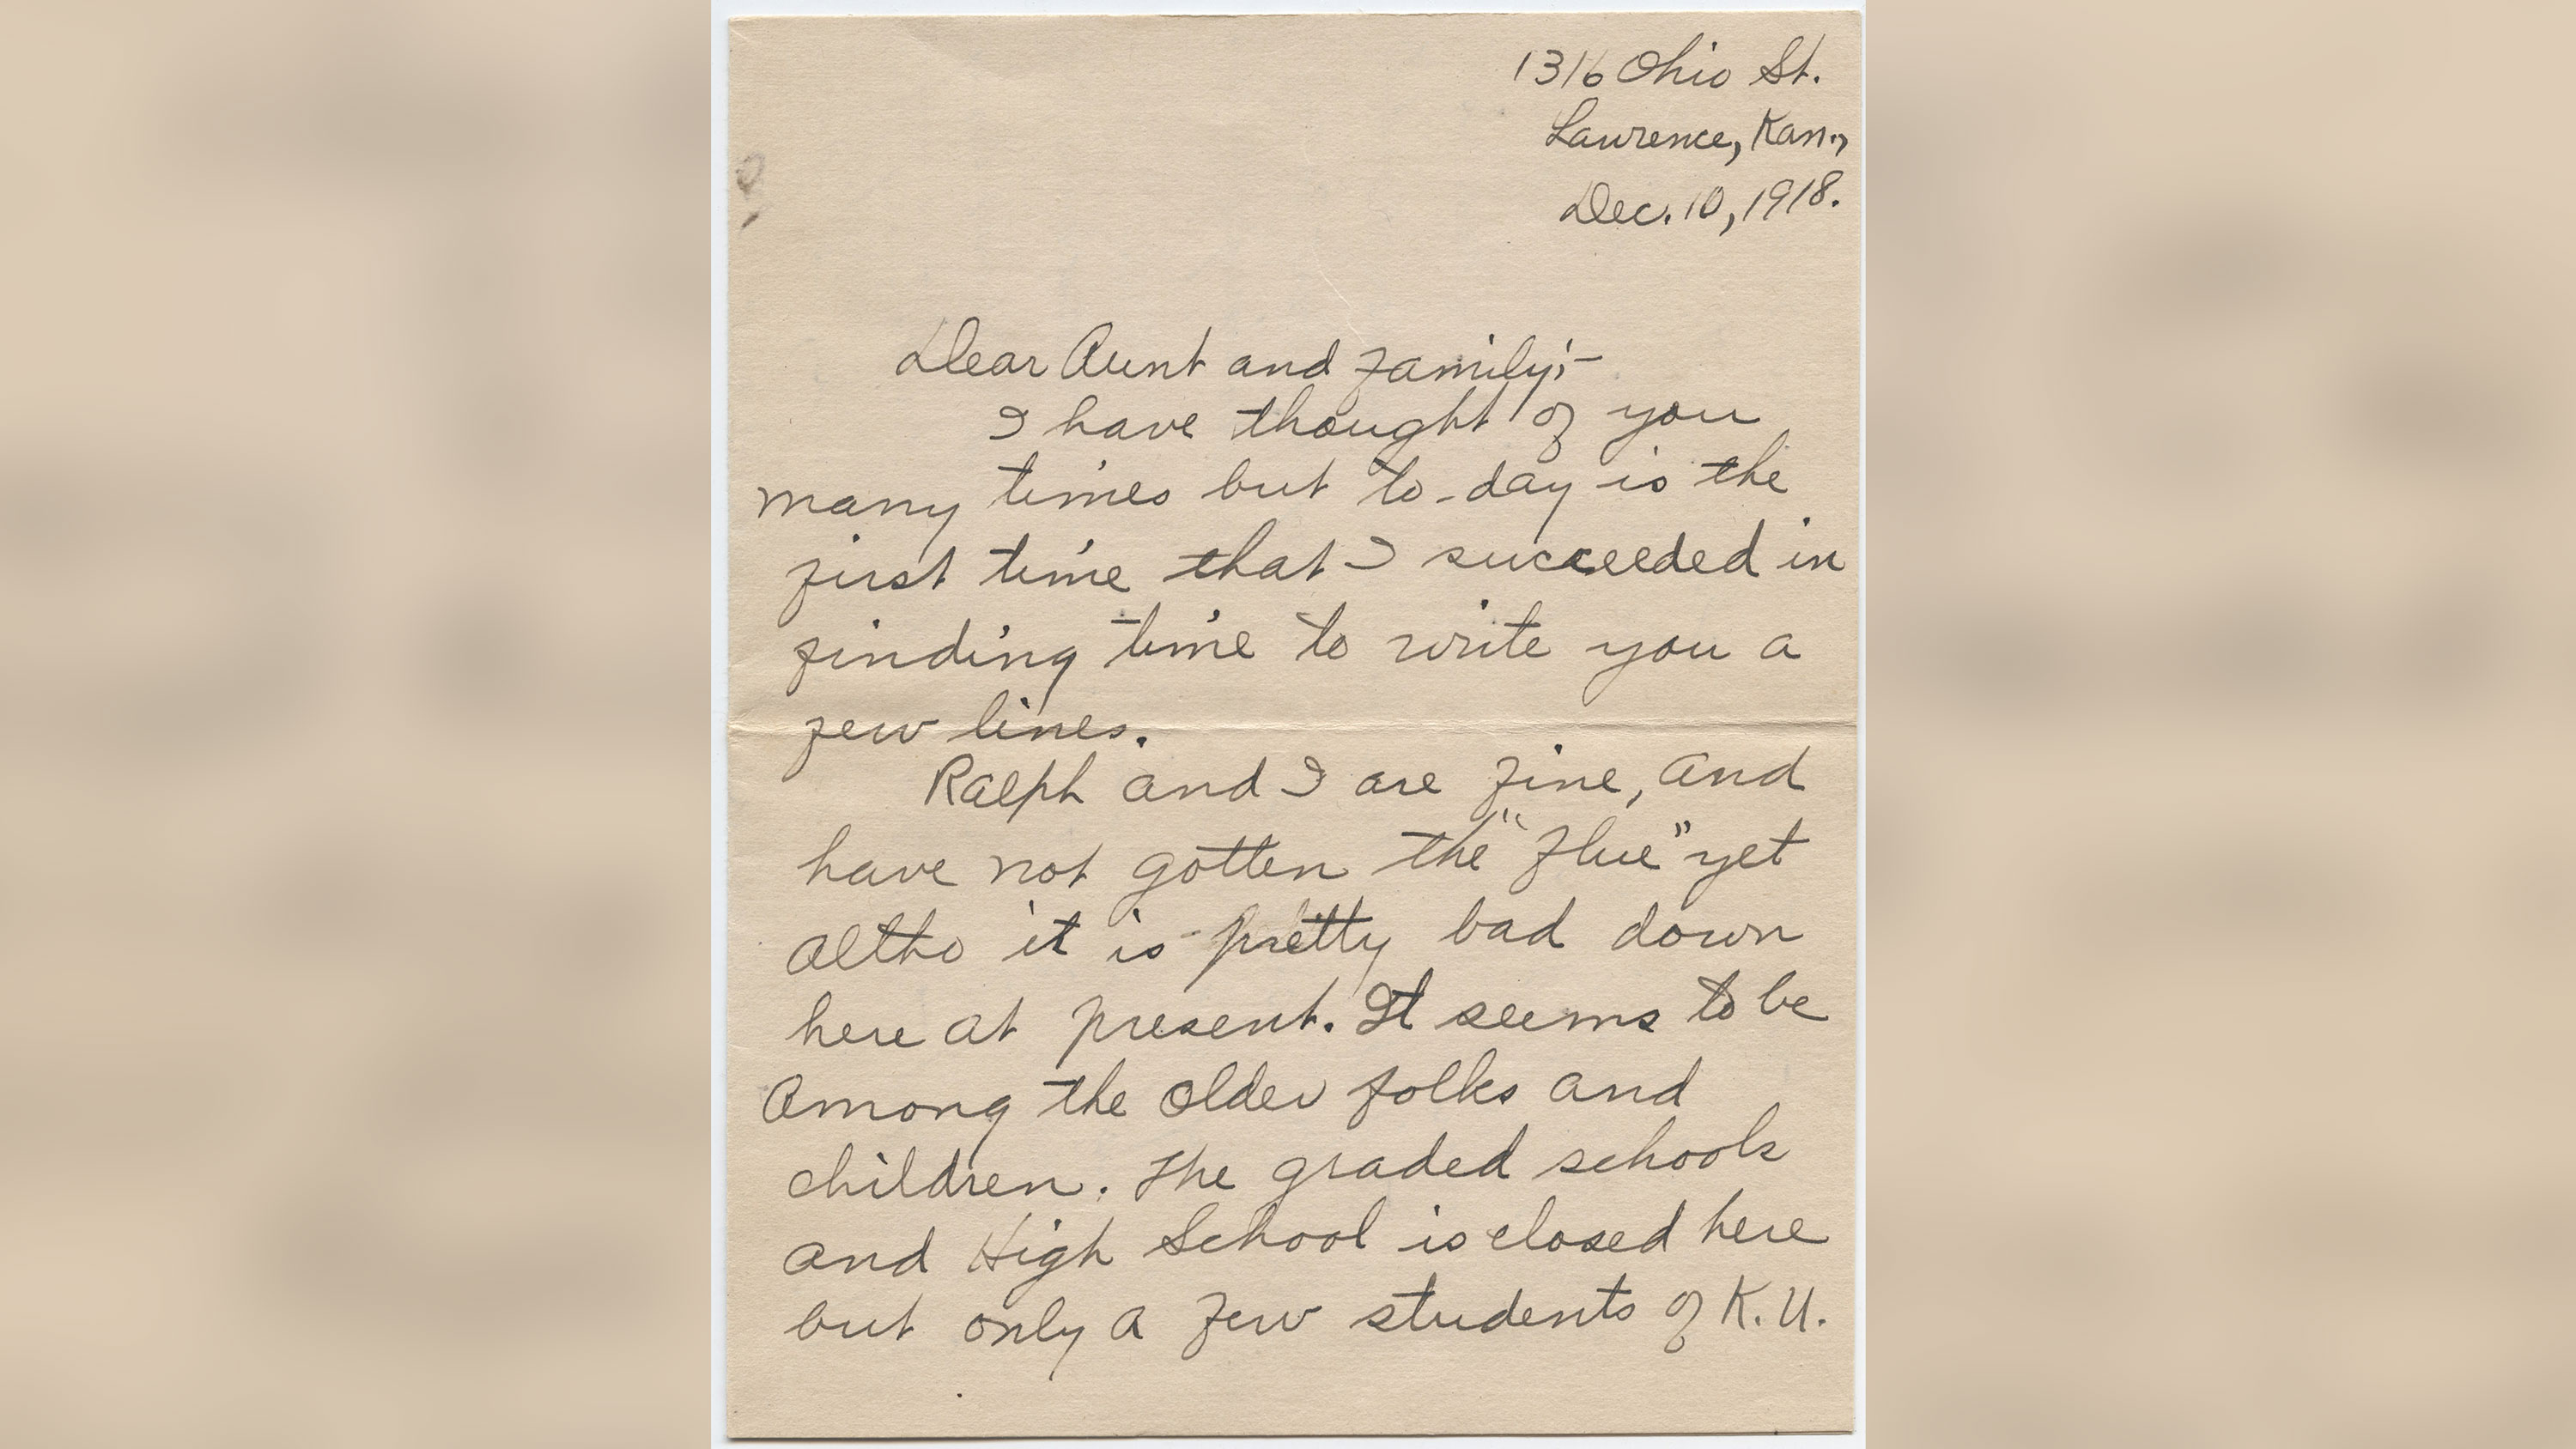 1316 Ohio St.
Lawrence, Kan.,
Dec. 10, 1918.
Dear Aunt and Family;-
I have thought of you
many times but to-day is the
first time that I succeeded in
finding time to write you a
few lines.
Ralph and I are fine, and
have not gotten the "Flue" yet
altho it is pretty bad down
here at present. It seems to be
among the older folks and
children. The graded schools
and High School is closed here
but only a few students of K.U.